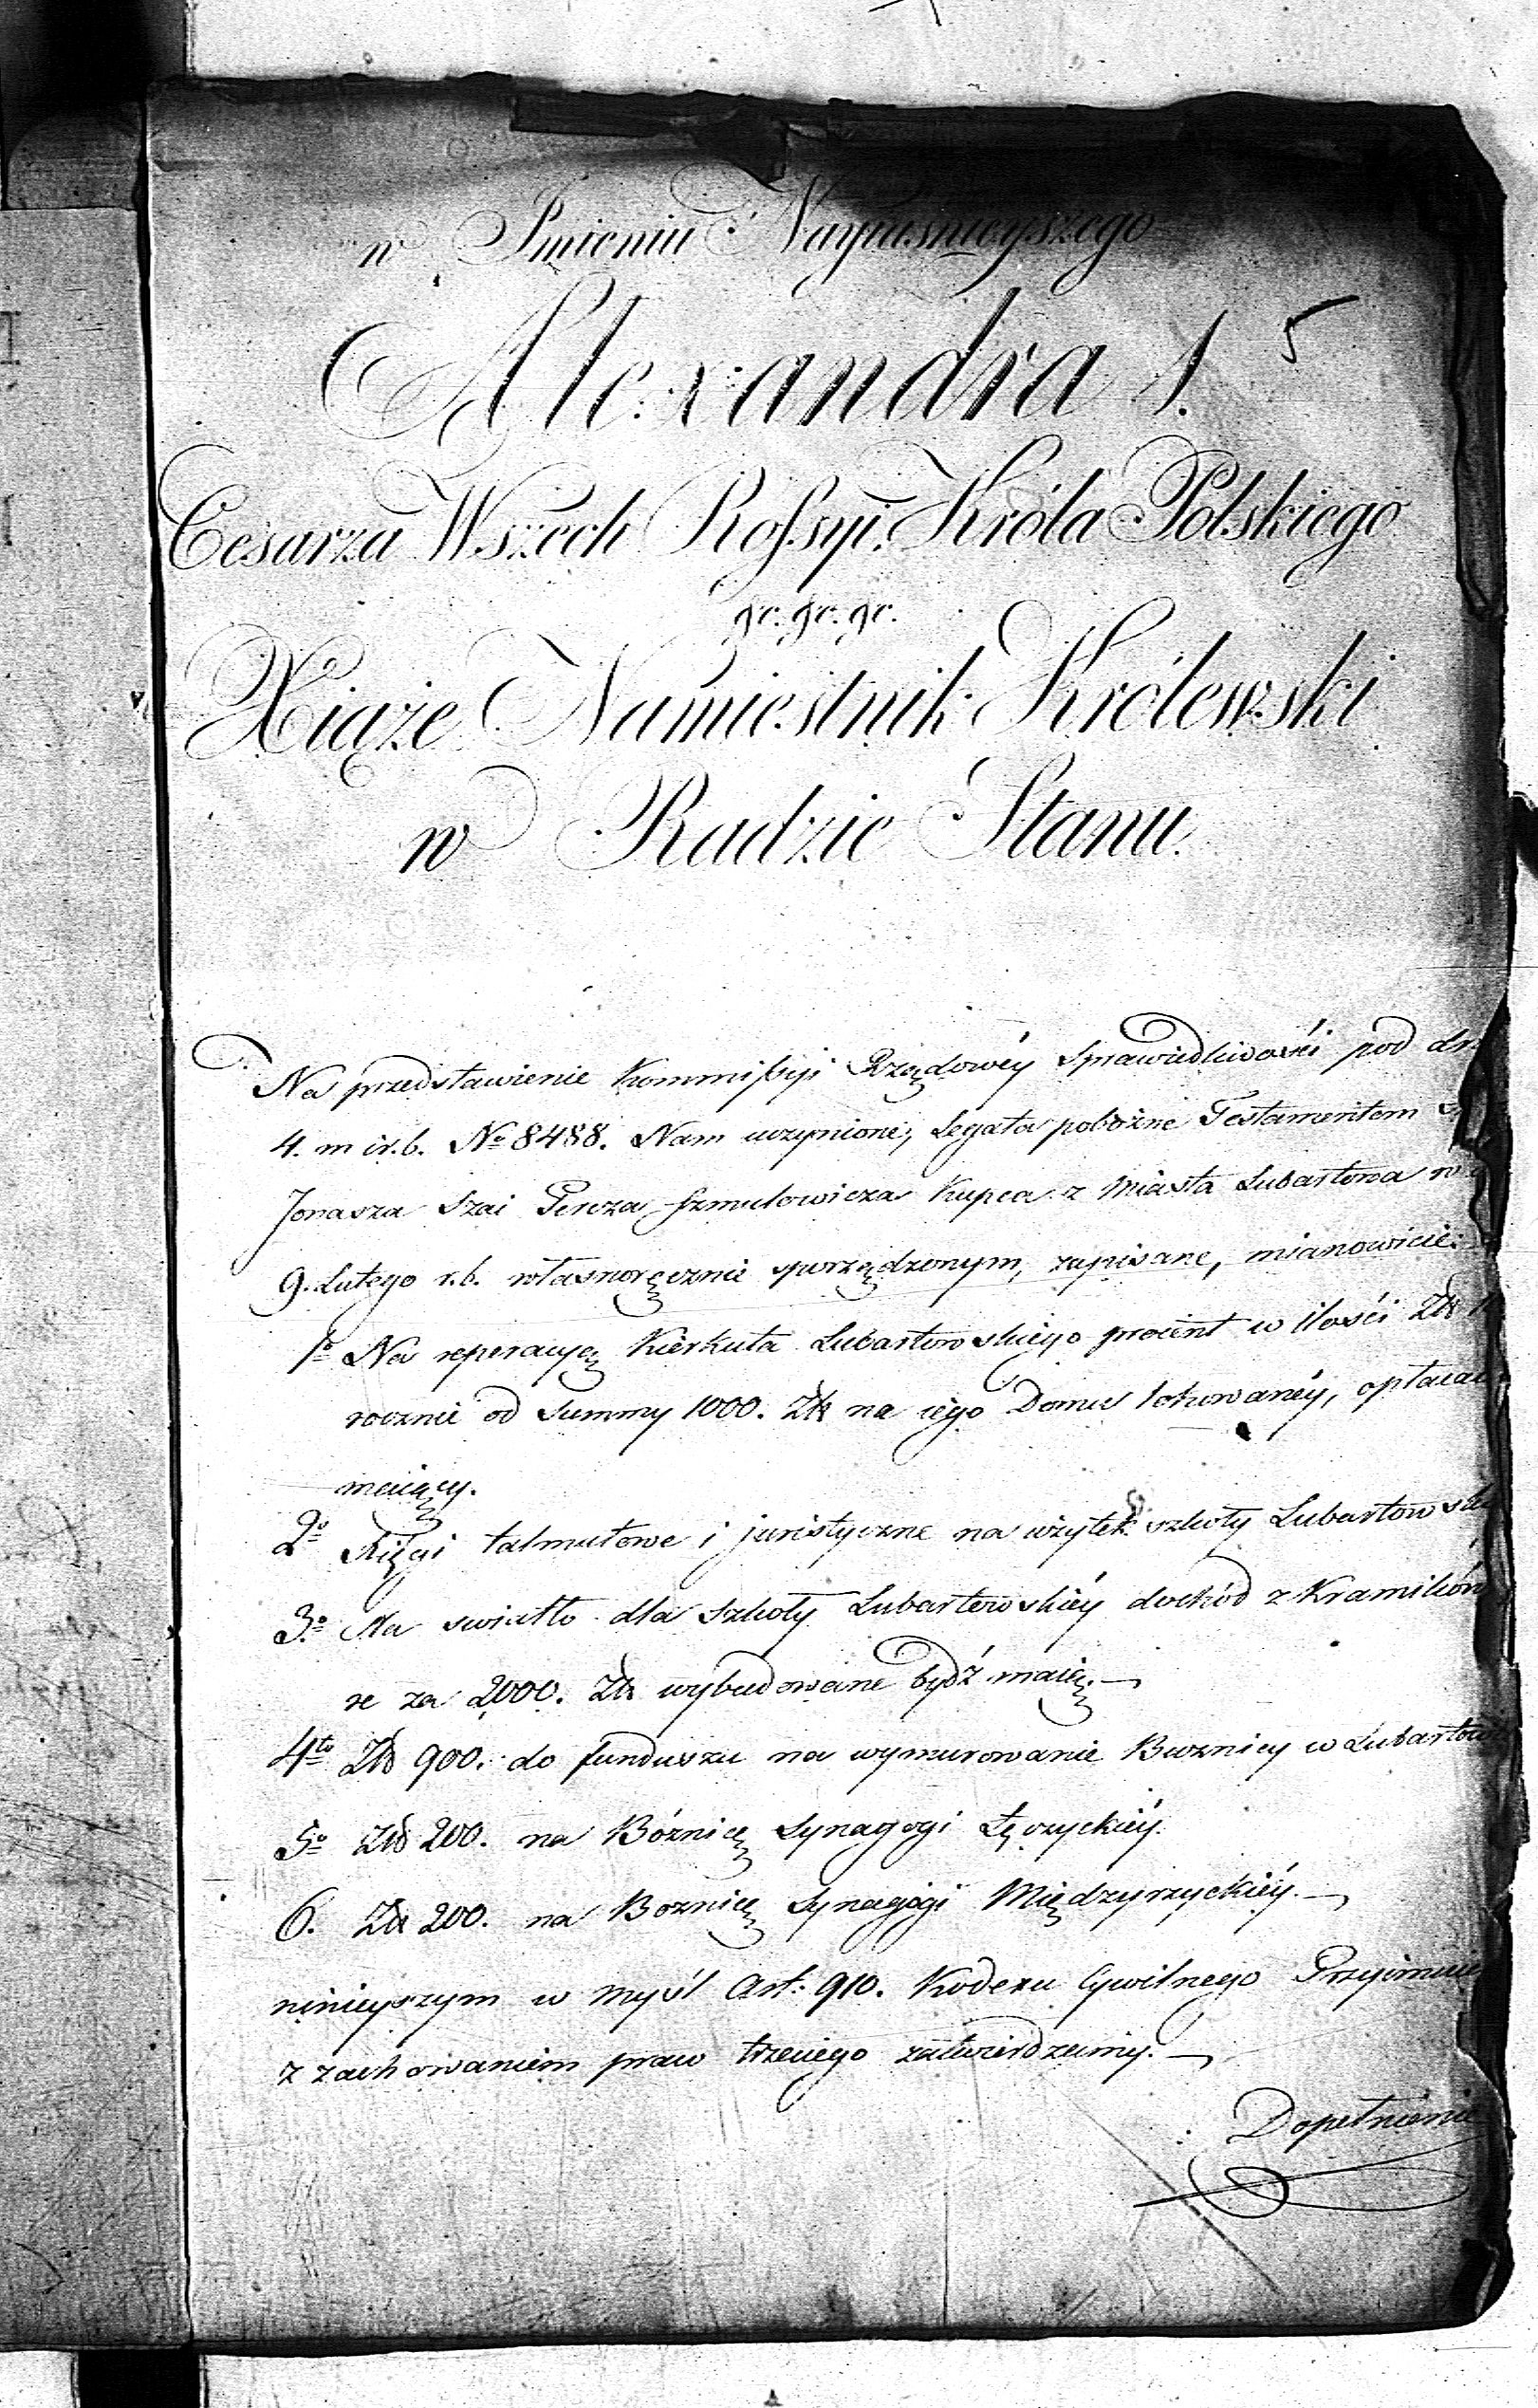 w Jmieniu Nayiaśnieyszego
Alexandra 1. 5
Cesarza Wszech Rossyi, Króla Polskiego
&c. &c. &c.
Xiąże Namiestnik Królewski
w Radzie Stanu.
Na przedstawienie Kommissyi Rządowéy Sprawiedliwości pod dn.
4. m i r. b. No 8488. Nam uczynione, Legata pobożne Testamentem
Jonasza Szai Percza Szmulowicza Kupca z Miasta Lubartowa
9. Lutego r. b. własnoręcznie sporządzonym, zapisane, mianowicie:
1o Na reperacyą Kierkuta Lubartowskiego procent w ilości Zł
rocznie od Summy 1000. Zł na iego Domu lokowanéy, opłacać
maiący.
2o Xięgi talmutowe i juristyczne na użytek szkoły Lubartowski
3o Na swiatło dla Szkoły Lubartowskiéy dochód z Kramików
re za 2000. Zł wybudowane bydź maią.
4to Zł 900. do funduszu na wymurowanie Buznicy w Lubartow
5o Zł 200. na Bóżnicę Synagogi Łęczyckiéy.
6. Zł 200. na Boznicę Synagogi Międzyrzyckiéy.
ninieyszym w myśl Art: 910. Kodexu Cywilnego Przyimuie
z zachowaniem praw trzeciego zatwierdzamy.
Dopełnienie